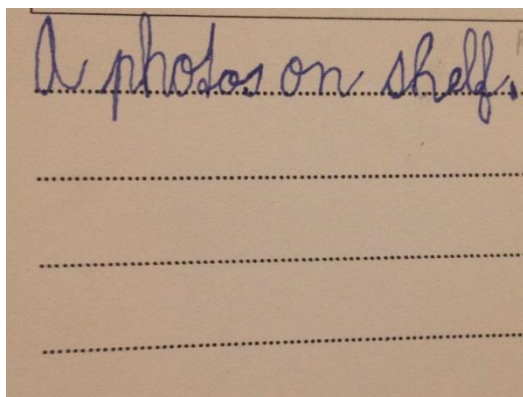 A photos on shelf.